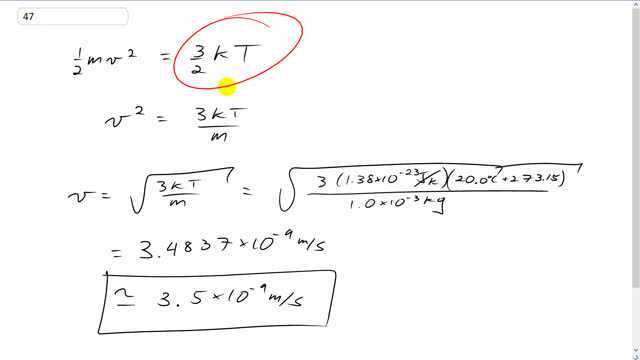 47
½mv² = 3/2 kT
v² = 3kT/m
v = √(3kT/m) = √(3(1.38×10⁻²³J/k)(20.0°C+273.15)/1.0×10⁻³kg)
= 3.4837×10⁻⁹m/s
≃ 3.5×10⁻⁹m/s